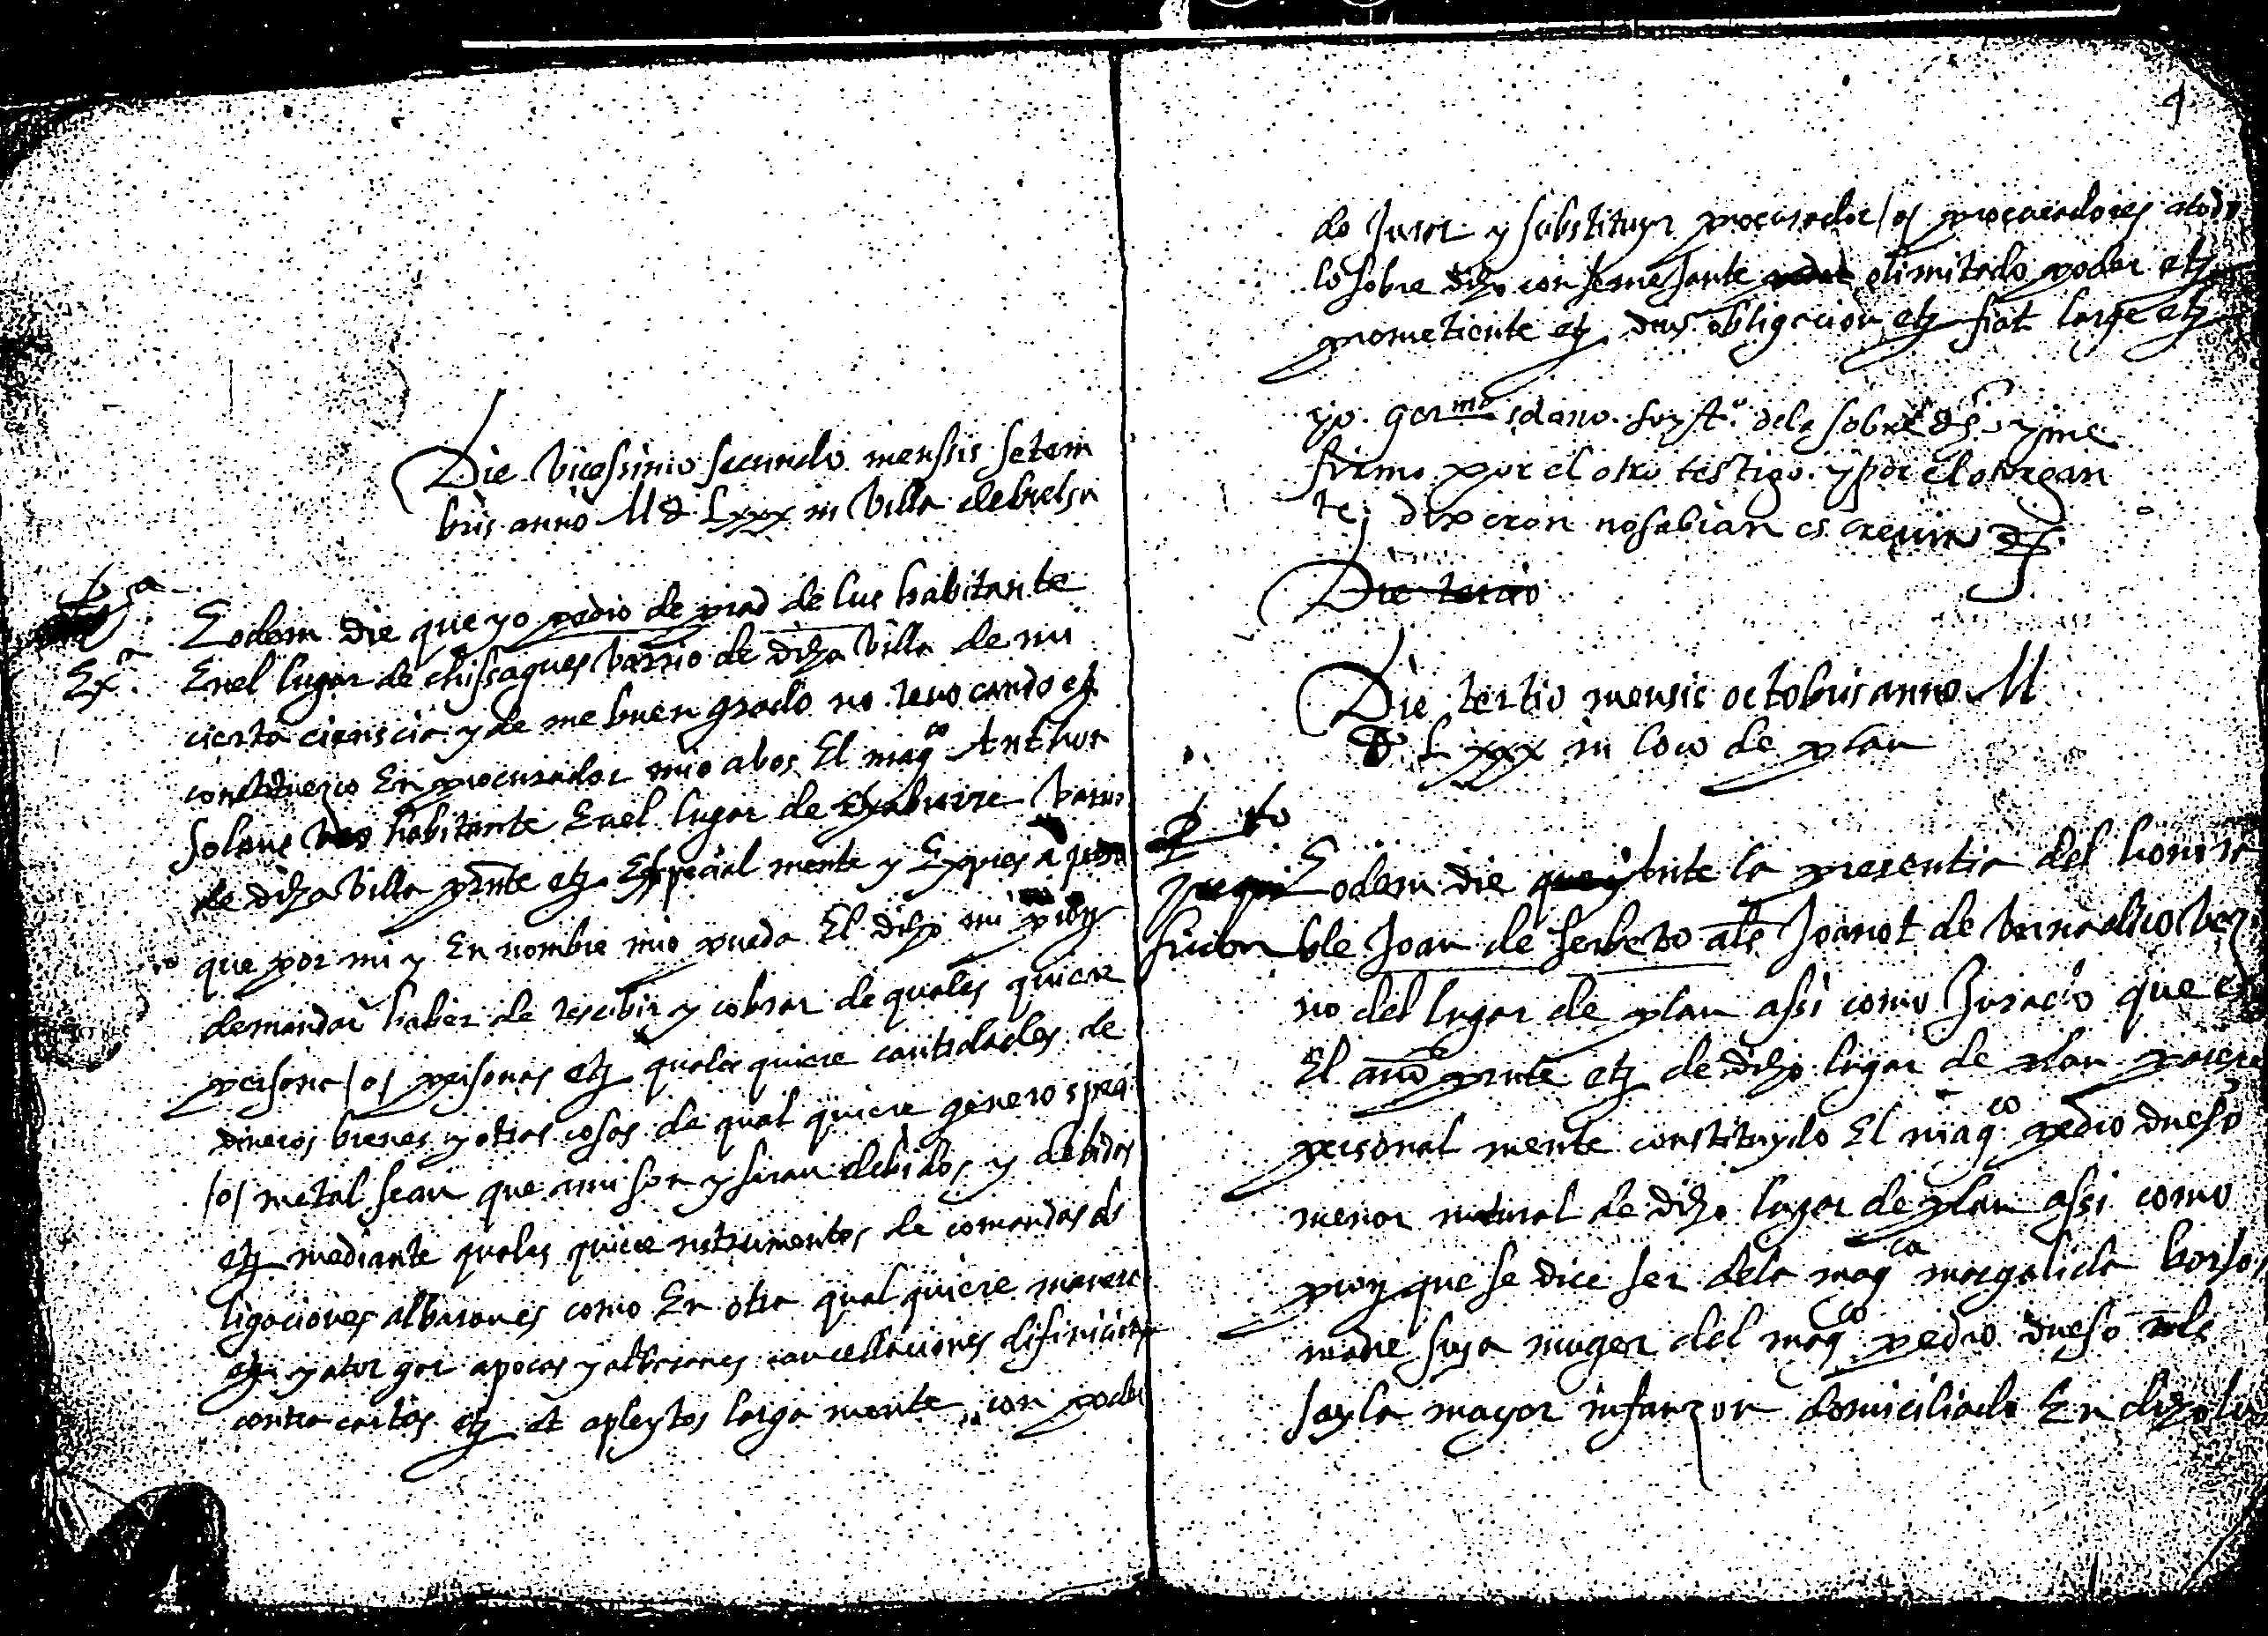 Die vicessimo secundo menssis setem
bris anno M d Lxxx in villa de bielsa
Ex.ª
Eodem die que yo pedro de prad de lue habitante
En el lugar de chissagues barrio de dicha villa de mi
cierta ciencia y de me buen grado no revocando etz
constituezco En procurador mio a bos El magco Anthon
Solans habitante En el lugar de barrio
de dicha villa pnte etz Especial mente y Expresa para
que por mi y En nombre mio pueda El dicho mi procʳ
demandar haber de rescibir y cobrar de quales quiere
persona /o/ personas etz quales quiere cantidades de
dineros bienes y otras cosas de qual quiere genero speci
/o/ metal sean que a mi son y seran debidos y debidas
etz mediante quales quiere instrumentos de comandas ob
ligaciones albaranes como En otra qual quiere manera
etz y atorgar apocas y albaranes cancellaciones difiniciones
contra cartas etz et a pleytos larga mente con poder
de jurar y substituyr procurador /o/ procuradores a todo
lo sobre dicho con semejante olimitado poder etz
prometiente etz dius obligacion etz fiat large etz
yo germo solano soy tº de la sobre dha y me
firmo por el otro testigo y por el otorgan
te dixeron no sabian escreuir
Die tercio
Die tertio mensis octobris anno M
D L xxx in loco de plan
Eodem die que y ante la presentia del honora
ble Joan de serbeto als Joanot de bezi
no del lugar de plan assi como Jurado que es
El año pnte etz de dicho lugar de plan parescio
personal mente constituydo El magco pedro dueso
menor natural de dicho lugar de plan assi como
procʳ que se dice ser de la magca margalida
madre suya muger del magco pedro dueso als
sayla mayor infanzon domiciliado En dicho lu